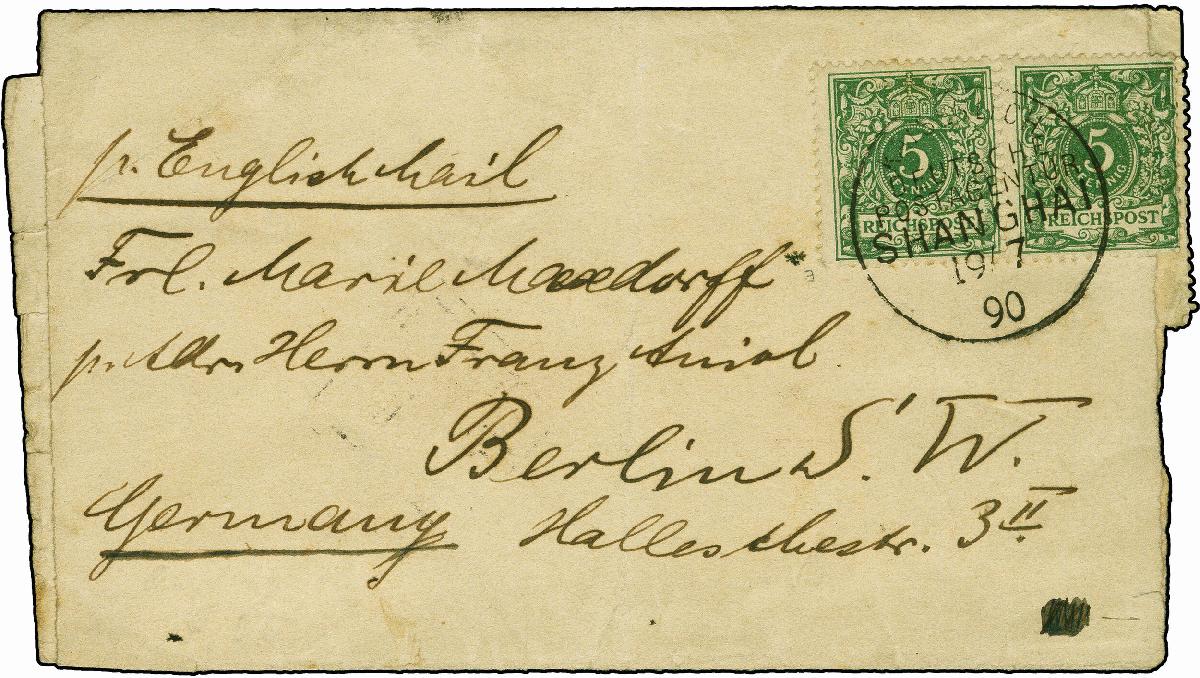 p. English Mail
Frl. Marie Maxdorff
p. Adr. Herrn Franz
Berlin S. W.
Germany Halleschestr. 3 II
5
PFENNIG
REICHSPOST
5
PFENNIG
REICHSPOST
DEUTSCHE
POSTAGENTUR
SHANGHAI
19/7
90